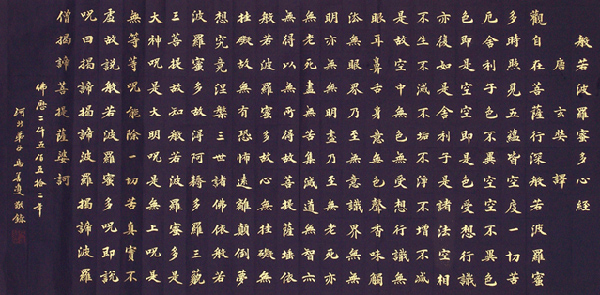 般若波羅蜜多心經
唐玄奘譯
觀自在菩薩行深般若波羅蜜
多時照見五蘊皆空度一切苦
厄舍利子色不異空空不異色
色即是空空即是色受想行識
亦復如是舍利子是諸法空相
不生不滅不垢不淨不增不減
是故空中無色無受想行識無
眼耳鼻舌身意無色聲香味觸
法無眼界乃至無意識界無無
明亦無無明盡乃至無老死亦
無老死盡無苦集滅道無智亦
無得以無所得故菩提薩埵依
般若波羅蜜多故心無罣礙無
罣礙故無有恐怖遠離顛倒夢
想究竟涅槃三世諸佛依般若
波羅蜜多故得阿耨多羅三藐
三菩提故知般若波羅蜜多是
大神呪是大明呪是無上呪是
無等等呪能除一切苦真實不
虛故說般若波羅蜜多呪即說
呪曰揭諦揭諦波羅揭諦波羅
僧揭諦菩提薩婆訶
佛曆二千五佰五拾二年
弟子馬敬錄